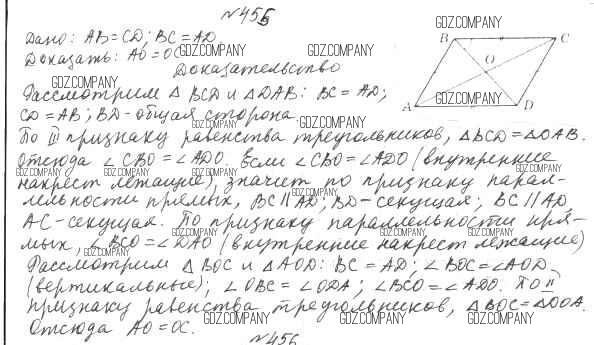 №455
Дано: AB=CD; BC=AD
Доказать: AO=OC
Доказательство
Рассмотрим △ BCD и △DAB: BC=AD;
CD=AB; BD-общая сторона.
По III признаку равенства треугольников, △BCD=△DAB.
Отсюда ∠CBO=∠ADO. Если ∠CBO=∠ADO (внутренние
накрест лежащие), значит по признаку парал-
лельности прямых, BC∥AD; BD-секущая; BC∥AD
AC-секущая. По признаку параллельности пря-
мых, ∠BCO=∠DAO (внутренние накрест лежащие)
Рассмотрим △ BOC и △AOD: BC=AD; ∠BOC=∠AOD
(вертикальные); ∠OBC=∠ODA; ∠BCO=∠ADO. По II
признаку равенства треугольников, △BOC=△DOA.
Отсюда AO=OC.
№456
B
C
O
A
D
GDZ.COMPANY
GDZ.COMPANY
GDZ.COMPANY
GDZ.COMPANY
GDZ.COMPANY
GDZ.COMPANY
GDZ.COMPANY
GDZ.COMPANY
GDZ.COMPANY